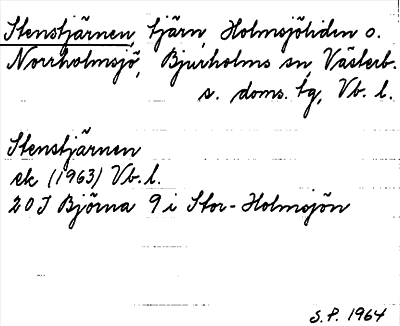 Stenstjärnen, tjärn, Holmsjöliden o.
Norrholmsjö, Bjurholms sn, Västerb.
s. doms. tg, Vb. l.
Stenstjärnen
ek (1963) Vb. l.
20 J Björna 9 i Stor-Holmsjön
S. P. 1964